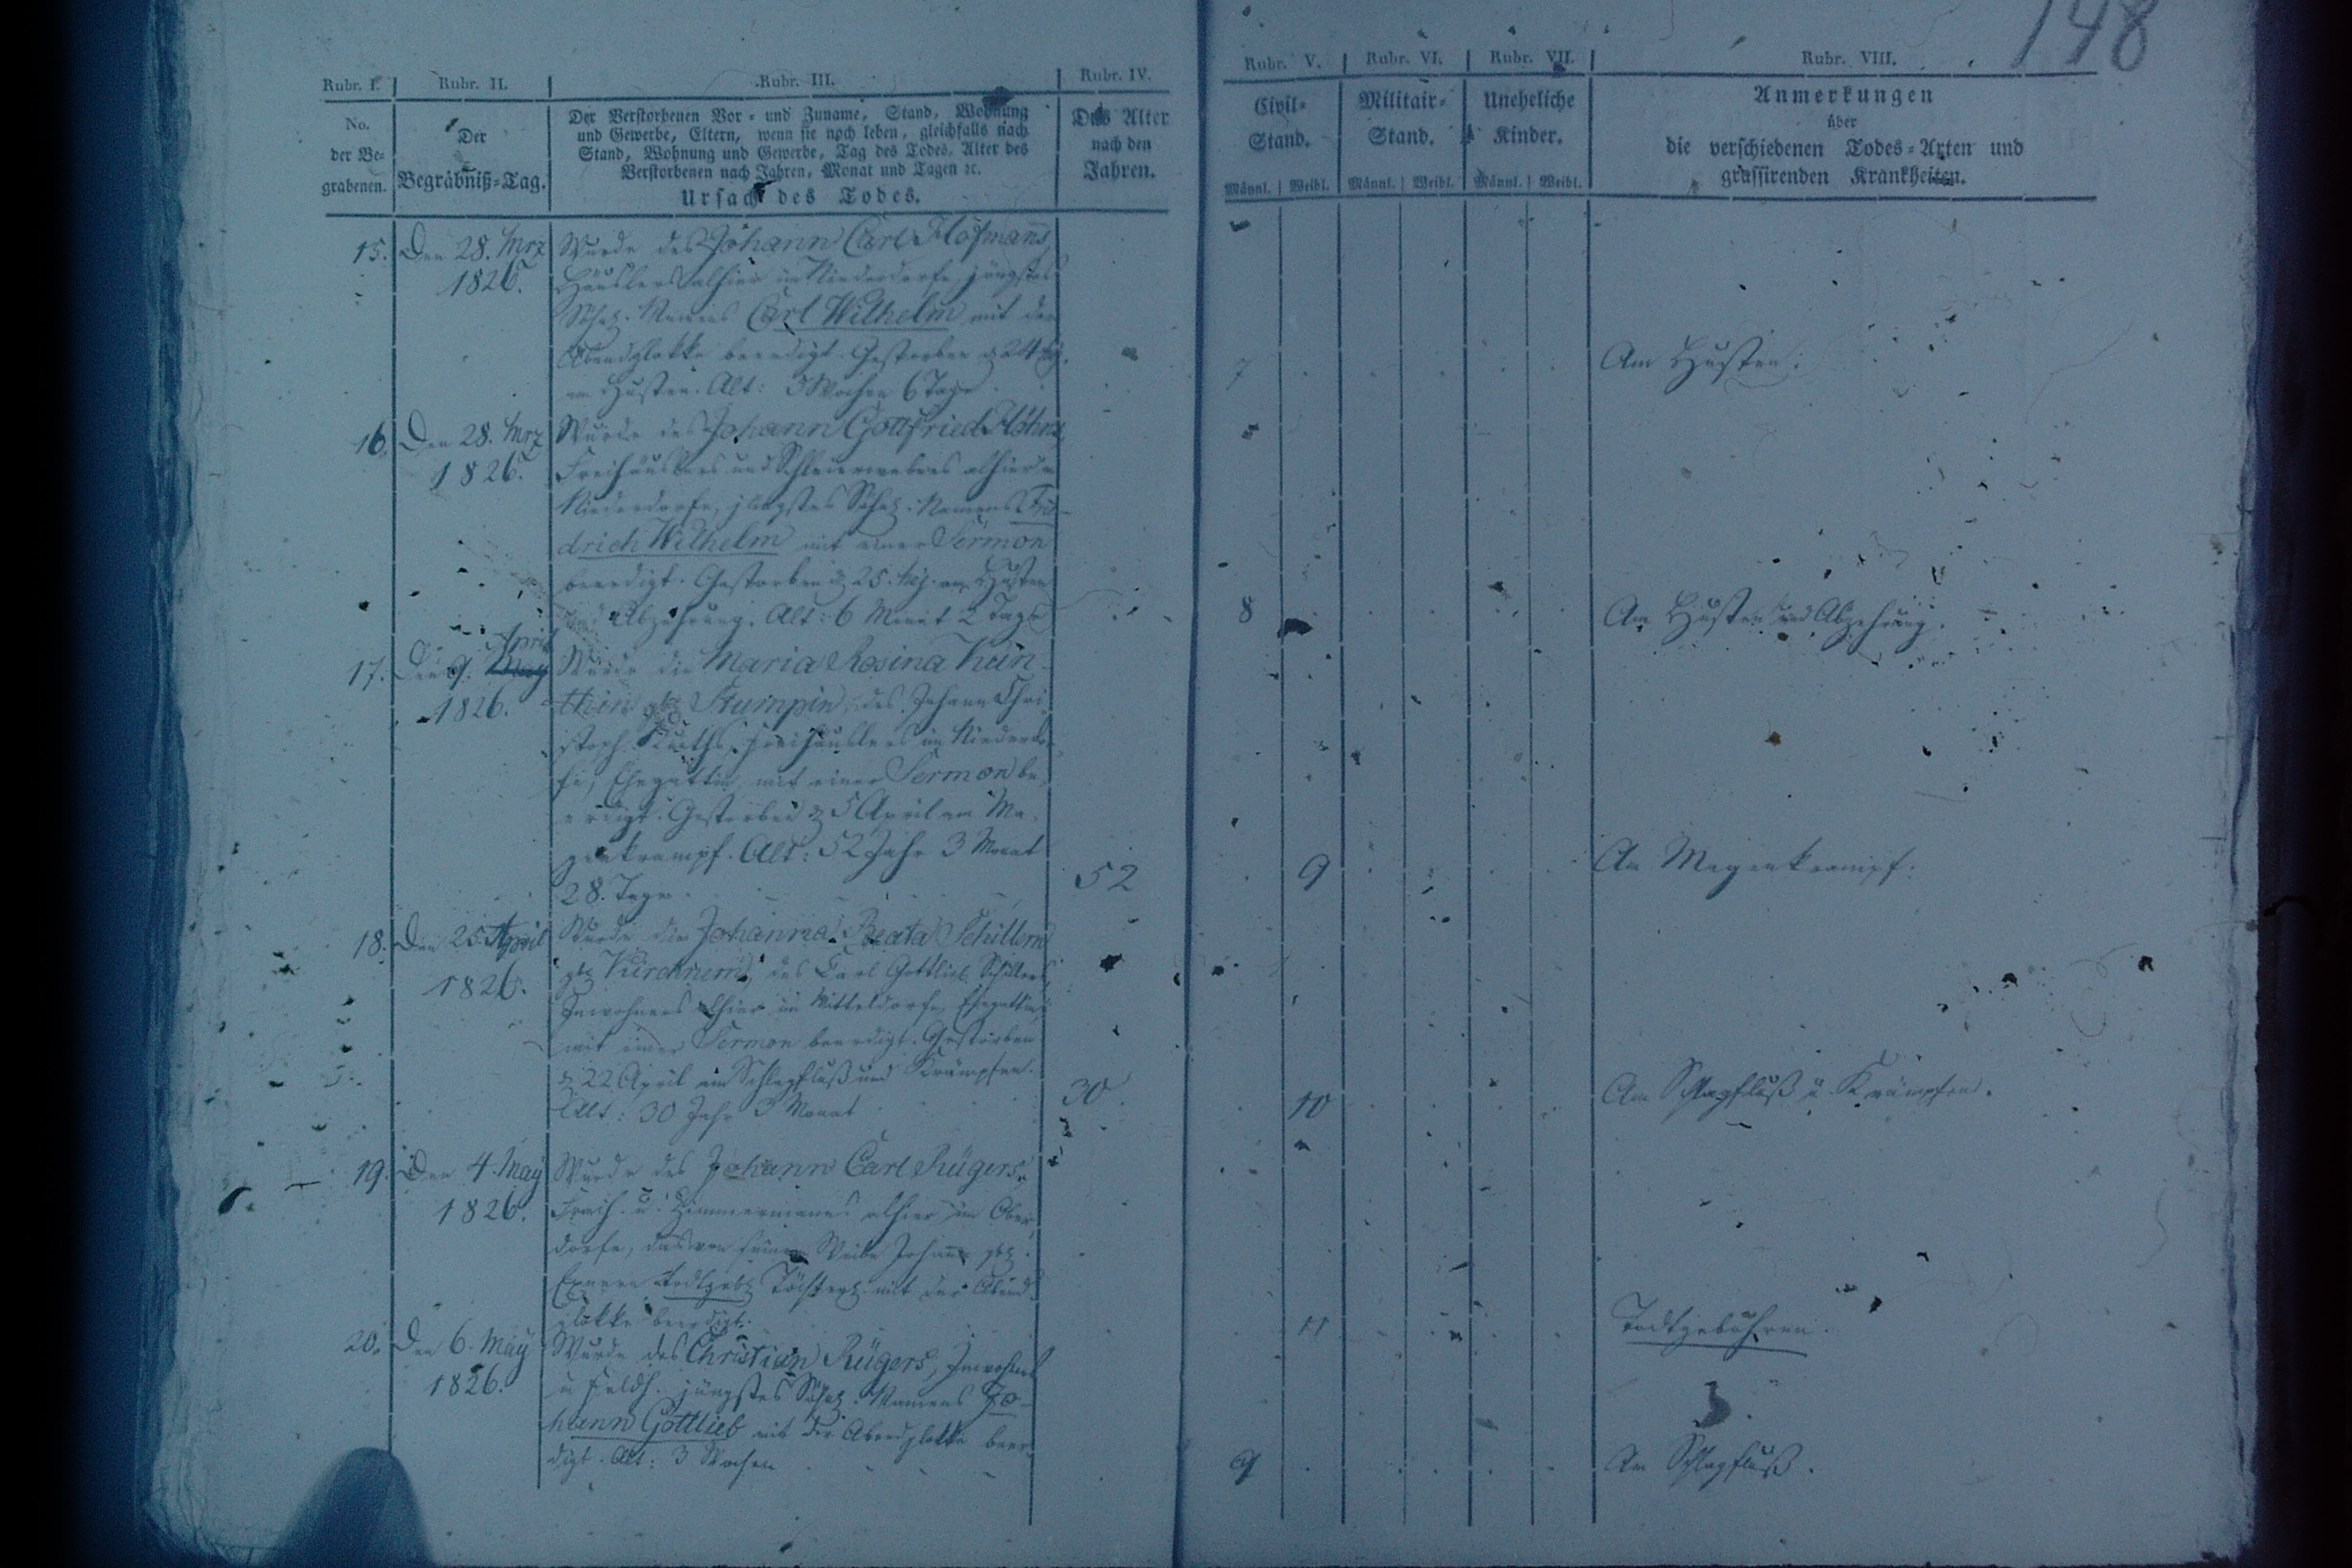 148
Rubr. I. Rubr. II. Rubr. III. Rubr. IV. Rubr. V. Rubr. VI. Rubr. VII. Rubr. VIII.
No.
der Be-
grabenen.
Der
Begräbniß-Tag.
Der Verstorbenen Vor- und Zuname, Stand, Wohnung
und Gewerbe, Eltern, wenn sie noch leben, gleichfalls nach
Stand, Wohnung und Gewerbe, Tag des Todes, Alter des
Verstorbenen nach Jahren, Monat und Tagen ꝛc.
Ursach des Todes.
Das Alter
nach den
Jahren.
Civil-
Stand.
Männl. Weibl.
Militair-
Stand.
Männl. Weibl.
Uneheliche
Kinder.
Männl. Weibl.
Anmerkungen
über
die verschiedenen Todes-Arten und
grassirenden Krankheiten.
15. Den 28. Mrz
1826.
Wurde des Johann Carl Hofmanns
Häuslers alhier im Niederdorfe, jüngstes
Namens Carl Wilhelm mit der
Abendglokke beerdigt. Gestorben 24
am Husten. Alt: 3 Wochen 6 Tage
7
Am Husten.
16. Den 28. Mrz
1826.
Wurde des Johann Gottfried
Freihäuslers und Schleierwebers alhier im
Niederdorfe, jüngstes Namens Frie-
drich Wilhelm mit einer Sermon
beerdigt. Gestorben 25. am Husten
und Abzehrung. Alt: 6 Monat 2 Tage
8
Am Husten und Abzehrung.
17. Den 9. April
1826.
Wurde die Maria Rosina Kun-
thin geb. Stumpin, des Johann Chri-
stoph Kunths, Freihäuslers im Niederdor-
fe, Ehegattin, mit einer Sermon be-
erdigt. Gestorben 5 April am Ma-
genkrampf. Alt: 52 Jahr 3 Monat
28. Tage.
52
9
Am Magenkrampf.
18. Den 25. April
1826.
Wurde die Johanna Beata Schillern
geb. Kirchnern, des Carl Gottlieb Schillers,
Inwohners alhier im Mitteldorfe, Ehegattin,
mit einer Sermon beerdigt. Gestorben
22 April am Schlagfluß und Krämpfen.
Alt: 30 Jahr 3 Monat
30.
10
Am Schlagfluß u. Krämpfen.
19. Den 4. May
1826.
Wurde des Johann Carl Rügers,
Freih. u. Zimmermanns alhier im Ober-
dorfe, das von seinem Weibe Johane geb.
Exnern todtgeb. Töchterl. mit der Abend-
glokke beerdigt.
11
Todtgebohren.
20. Den 6. May
1826.
Wurde des Christian Rügers, Inwohners
u. jüngstes Namens Jo-
hann Gottlieb mit der Abendglokke beer-
digt. Alt: 3 Wochen
9
Am Schlagfluß.